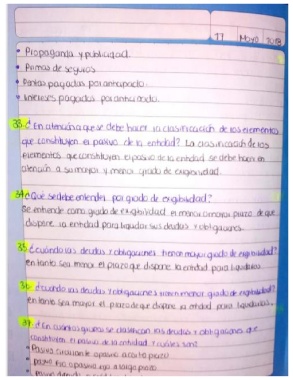 17 Mayo 2018
• Propaganda y publicidad.
• Primas de seguros
• Rentas pagadas por anticipado.
• Intereses pagados por anticipado.
33-¿En atención a que se debe hacer la clasificación de los elementos
que constituyen el pasivo de la entidad? La clasificación de los
elementos que constituyen el pasivo de la entidad se debe hacer en
atención a su mayor y menor grado de exigibilidad.
34 ¿Qué se debe entender por grado de exigibilidad?
Se entiende como grado de exigibilidad el menor o mayor plazo de que
dispone la entidad para liquidar sus deudas y obligaciones.
35 ¿Cuándo las deudas y obligaciones tienen mayor grado de exigibilidad?
en tanto sea menor el plazo que dispone la entidad para liquidarlos
36- ¿Cuándo las deudas y obligaciones tienen menor grado de exigibilidad?
en tanto sea mayor el plazo de que dispone la entidad para liquidarlos.
37- ¿En cuántos grupos se clasifican las deudas y obligaciones que
constituyen el pasivo de la entidad y cuáles son?
• Pasivo circulante o pasivo a corto plazo
• Pasivo fijo o pasivo a largo plazo